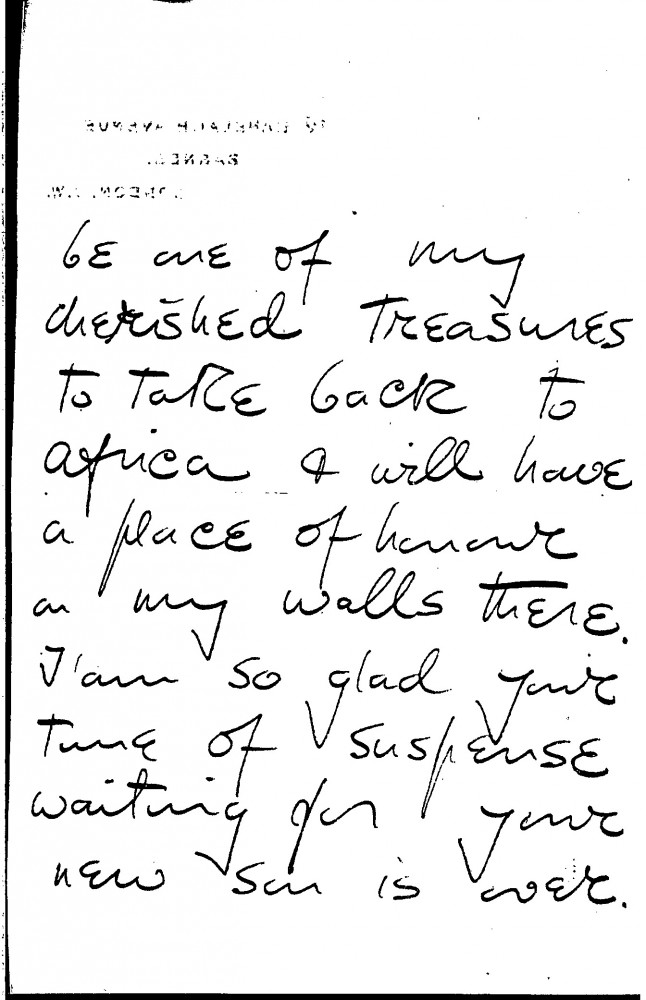 AVENUE
BARNES.
LONDON. S.W.
be one of my
cherished treasures
to take back to
Africa & will have
a place of honour
on my walls there.
I'am so glad your
time of suspense
waiting for your
new son is over.